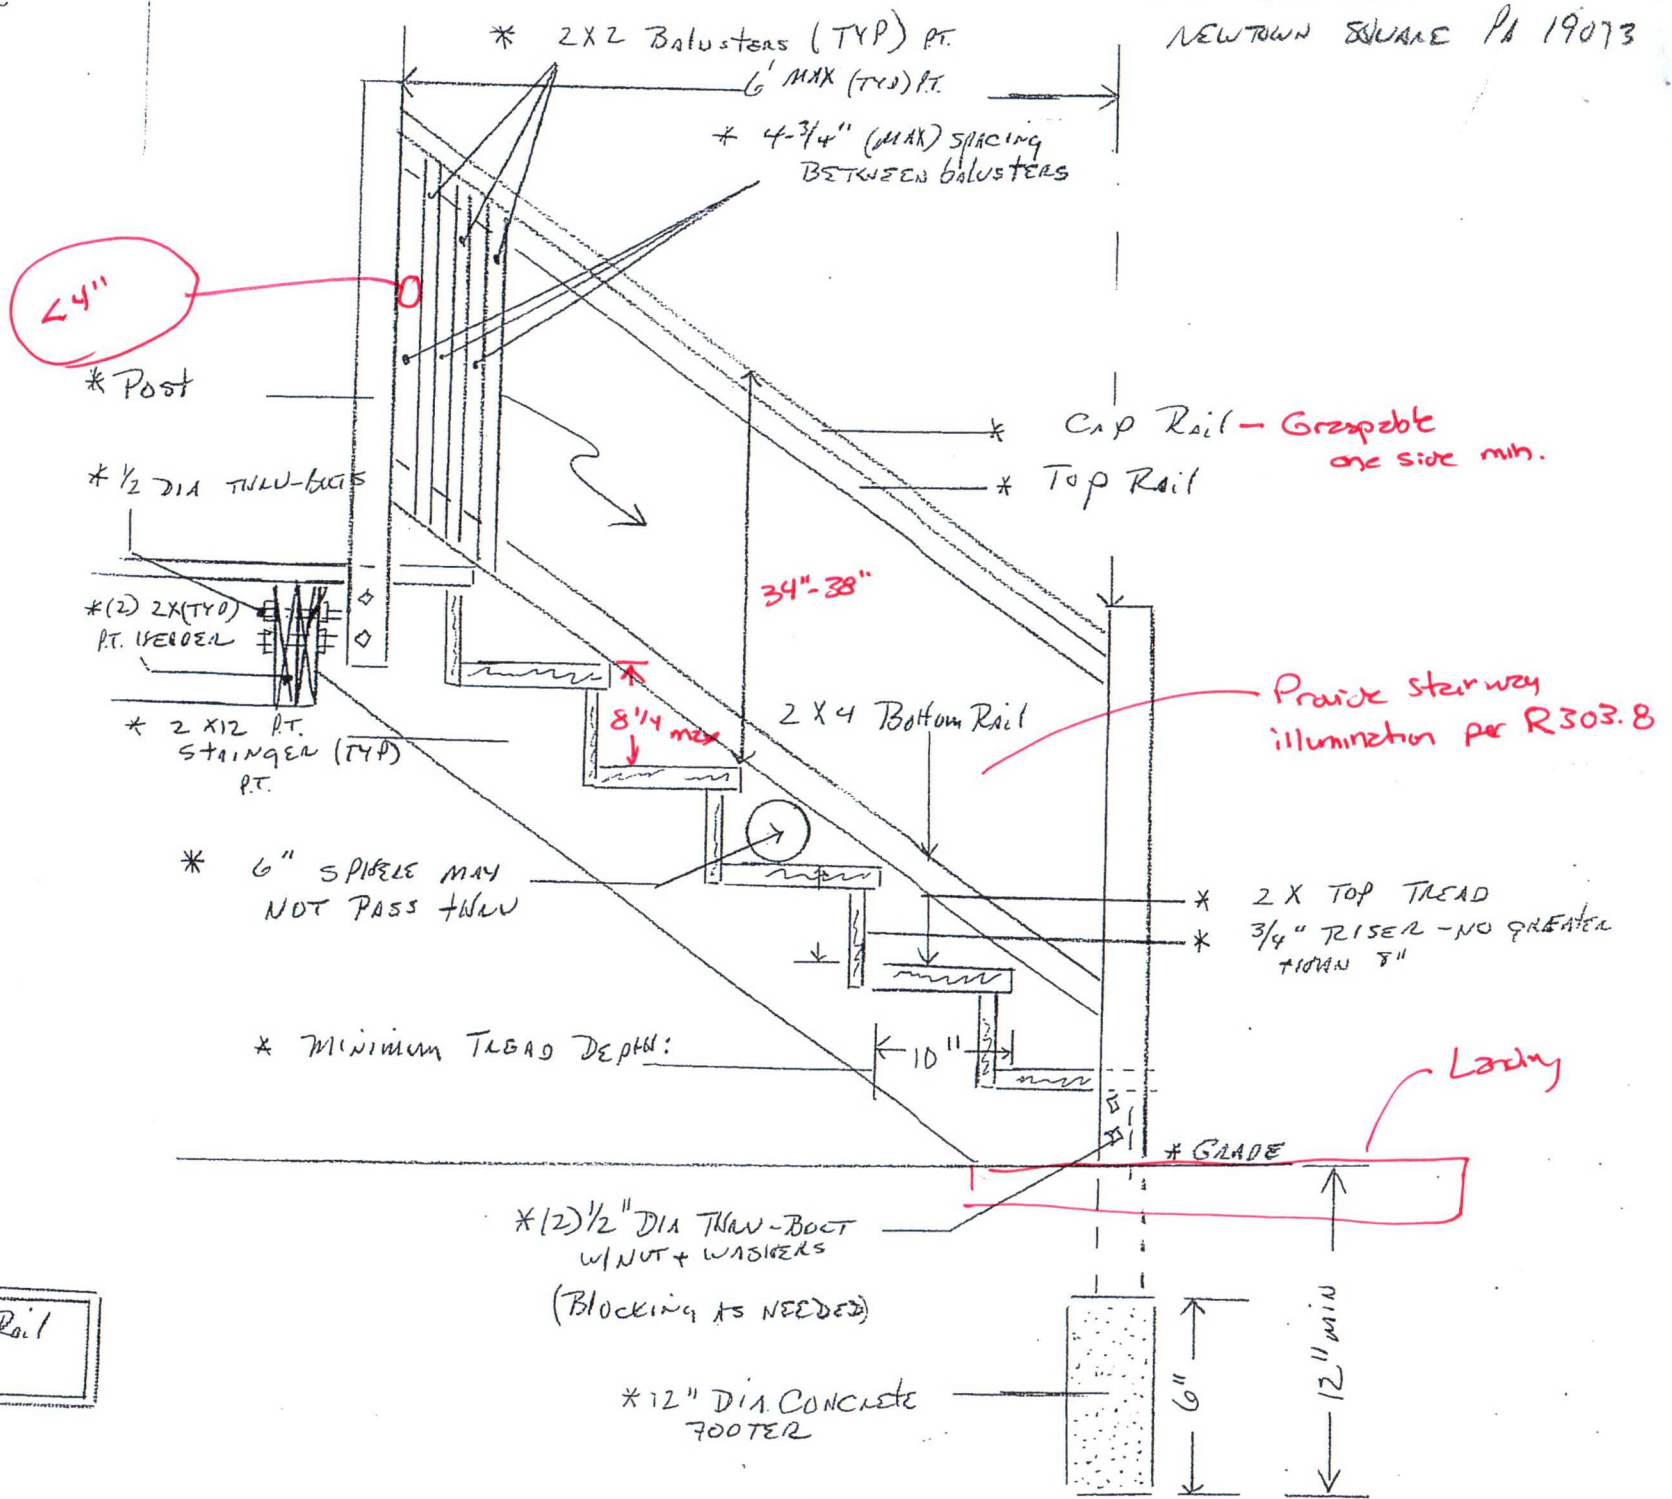 * 2X2 Balusters (TYP) P.T.
NEWTOWN SQUARE PA 19073
6' MAX (TYP) P.T.
* 4-3/4" (MAX) SPACING
BETWEEN balusters
<4"
* Post
* CAP Rail - Graspable
one side min.
* Top Rail
* 1/2 DIA THRU-BOLTS
34"-38"
*(2) 2X(TYP)
P.T. HEADER
Provide stairway
illumination per R303.8
8 1/4 max
2 X 4 Bottom Rail
* 2 X12 P.T.
STRINGER (TYP)
P.T.
* 6" SPHERE MAY
NOT PASS thru
* 2 X TOP TREAD
* 3/4" RISER - NO GREATER
THAN 8"
* Minimum TREAD DEPTH:
10"
Landing
* GRADE
*(2) 1/2" DIA THRU-BOLT
W/NUT + WASHERS
(Blocking AS NEEDED)
Rail
*12" DIA. CONCRETE
FOOTER
6"
12" MIN